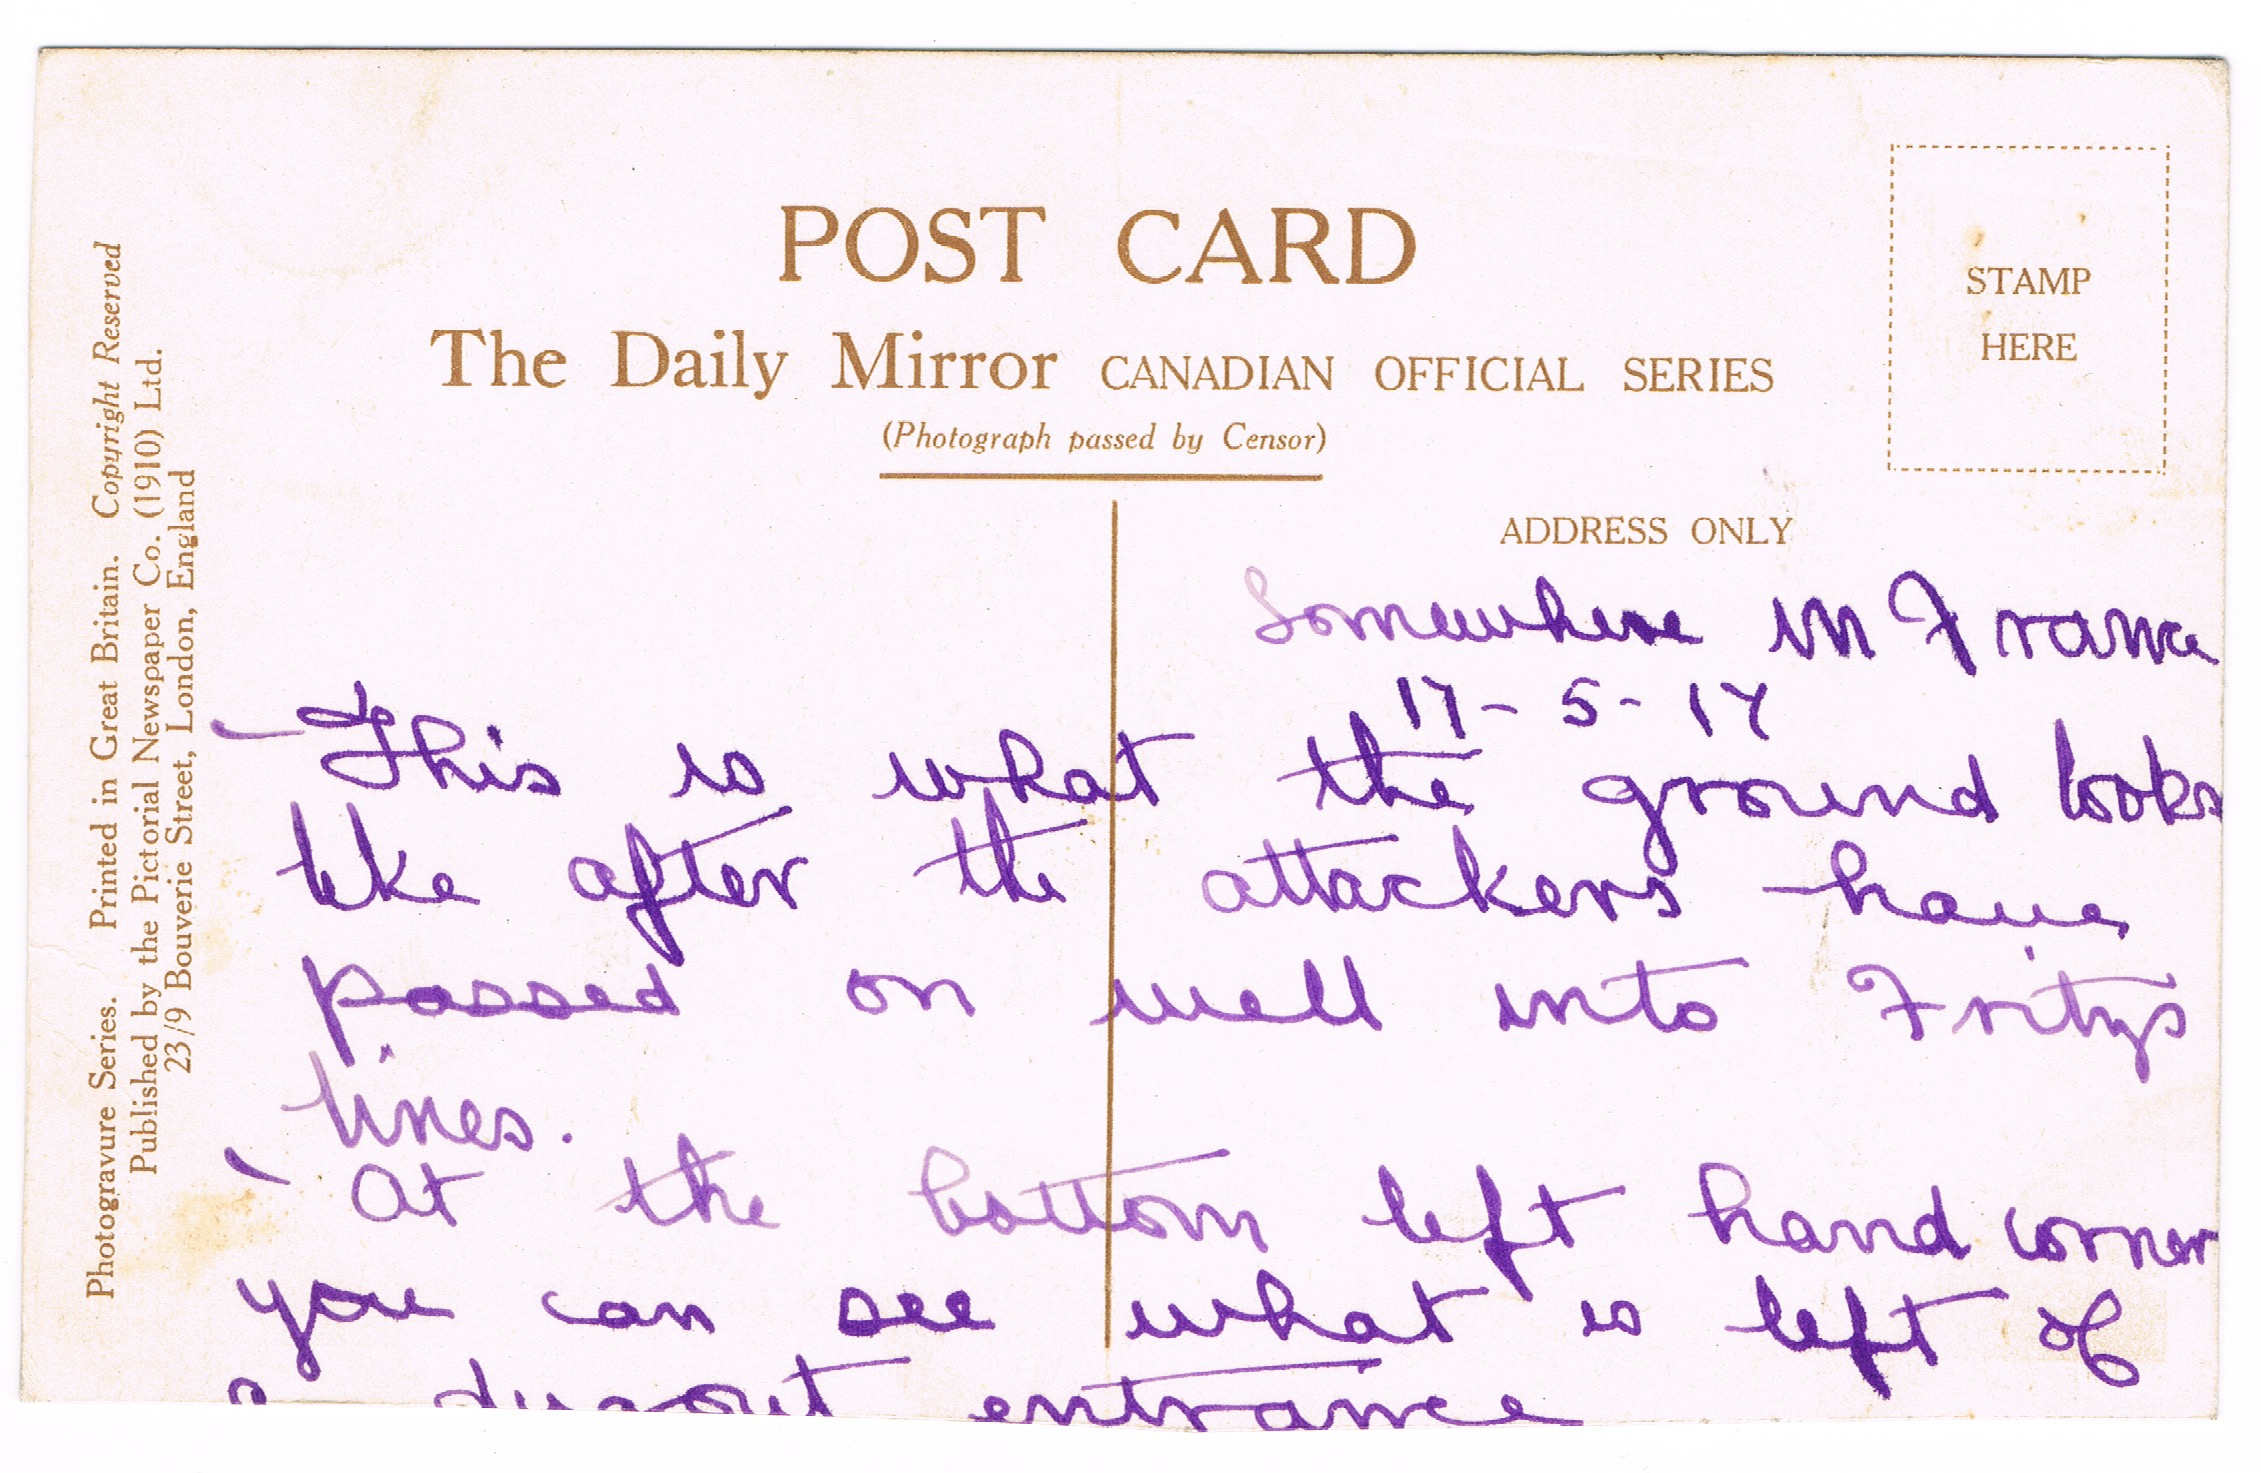 POST CARD
The Daily Mirror CANADIAN OFFICIAL SERIES
(Photograph passed by Censor)
STAMP
HERE
ADDRESS ONLY
Photogravure Series. Printed in Great Britain. Copyright Reserved
Published by the Pictorial Newspaper Co. (1910) Ltd.
23/9 Bouverie Street, London, England
Somewhere in France
17-5-17
This is what the ground looks
like after the attackers have
passed on well into Fritzs
lines.
At the bottom left hand corner
you can see what is left of
a dugout entrance